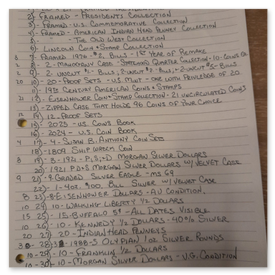 2) FRAMED - PRESIDENTS COLLECTION
3) FRAMED - U.S. COMMEMORATIVE COLLECTION
4) FRAMED - AMERICAN INDIAN HEAD PENNY COLLECTION
5) THE OLD WEST COLLECTION
6) LINCOLN COIN & STAMP COLLECTION
7) FRAMED 1976 $2. BILLS - 1ST YEAR OF
8) 2 - MAHOGANY CASE - STATEHOOD QUARTER COLLECTION - 10 COINS
9) 2 - UNCUT $1. BILLS, 2 UNCUT $2. BILLS, 2 UNCUT $5. BILLS
10) 20 - PROOF SETS - U.S. MINT - ONE WITH PRIVILEDGE OF 20
11) 19TH CENTURY AMERICAN COINS & STAMPS
12) EISENHOWER COIN & STAMP COLLECTION - 21 UNCIRCULATED COINS
13) ZIPPED CASE THAT HOLDS 96 COINS OF YOUR CHOICE
14) 12 - PROOF SETS
15) 2023 - U.S. COINS BOOK
16) 2024 - U.S. COIN BOOK
17) 4 - SUSAN B. ANTHONY COIN SETS
18) 1804 SHIP WRECK COIN
19) 3 - 1921 - P, S, & D MORGAN SILVER DOLLARS
20) 1921 P, D & S MORGAN SILVER DOLLARS W/ VELVET CASE
21) GRADED SILVER EAGLE - MS 69
22) 1 - 4OZ. $100 BILL SILVER W/ VELVET CASE
23) 8 - EISENHOWER DOLLARS - AU CONDITION
24) 10 - WALKING LIBERTY 1/2 DOLLARS
25) 15 - BUFFALO 5¢ - ALL DATES VISIBLE
26) 10 - KENNEDY 1/2 DOLLARS - 40% SILVER
27) 20 - INDIAN HEAD PENNEYS
28) 3 - 1988-S OLYMPIAN 1OZ SILVER ROUNDS
29) 10 - FRANKLIN 1/2 DOLLARS
30) 10 - MORGAN SILVER DOLLARS - V.G. CONDITION